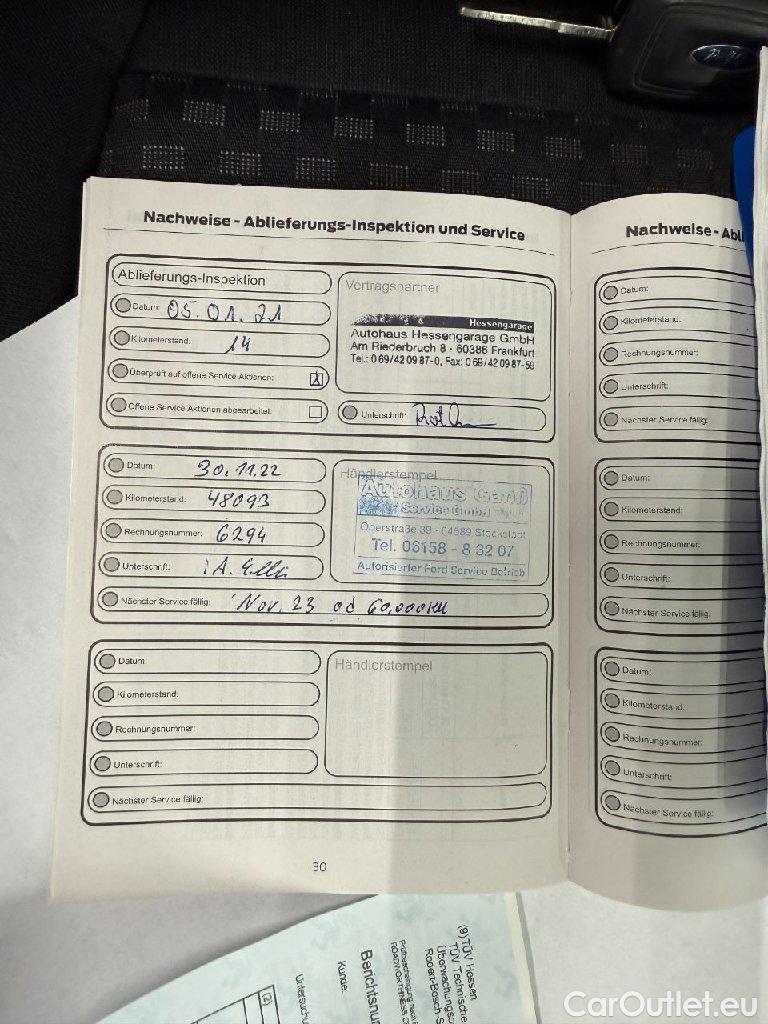 Nachweise - Ablieferungs-Inspektion und Service
Ablieferungs-Inspektion
Datum: 05.01.21
Kilometerstand: 14
Überprüft auf offene Service Aktionen: X
Offene Service Aktionen abgearbeitet:
Vertragspartner
Hessengarage
Autohaus Hessengarage GmbH
Am Riederbruch 8 - 60386 Frankfurt
Tel.: 069/420987-0, Fax: 069/420987-59
Unterschrift:
Datum: 30.11.22
Kilometerstand: 48093
Rechnungsnummer: 6294
Unterschrift: i.A.
Nächster Service fällig: Nov. 23 od 60.000 KM
Händlerstempel
Autohaus Genf
Service GmbH
Oberstraße 39 - 64589 Stockstadt
Tel. 06158 - 8 32 07
Autorisierter Ford Service Betrieb
Datum:
Kilometerstand:
Rechnungsnummer:
Unterschrift:
Nächster Service fällig:
Händlerstempel
30
Nachweise - Abli
Datum:
Kilometerstand:
Rechnungsnummer:
Unterschrift:
Nächster Service fällig:
Datum:
Kilometerstand:
Rechnungsnummer:
Unterschrift:
Nächster Service fällig:
Datum:
Kilometerstand:
Rechnungsnummer:
Unterschrift:
Nächster Service fällig:
(9) TÜV Hessen
TÜV Technische
Überwachung
Robert-Bosch-S
Berichtsnu
Kunde:
Untersuchu
(2)
CarOutlet.eu